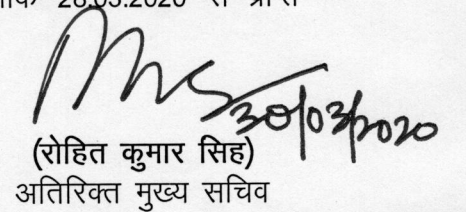 28.03.2020 से प्राप्त
30/03/2020
(रोहित कुमार सिंह)
अतिरिक्त मुख्य सचिव